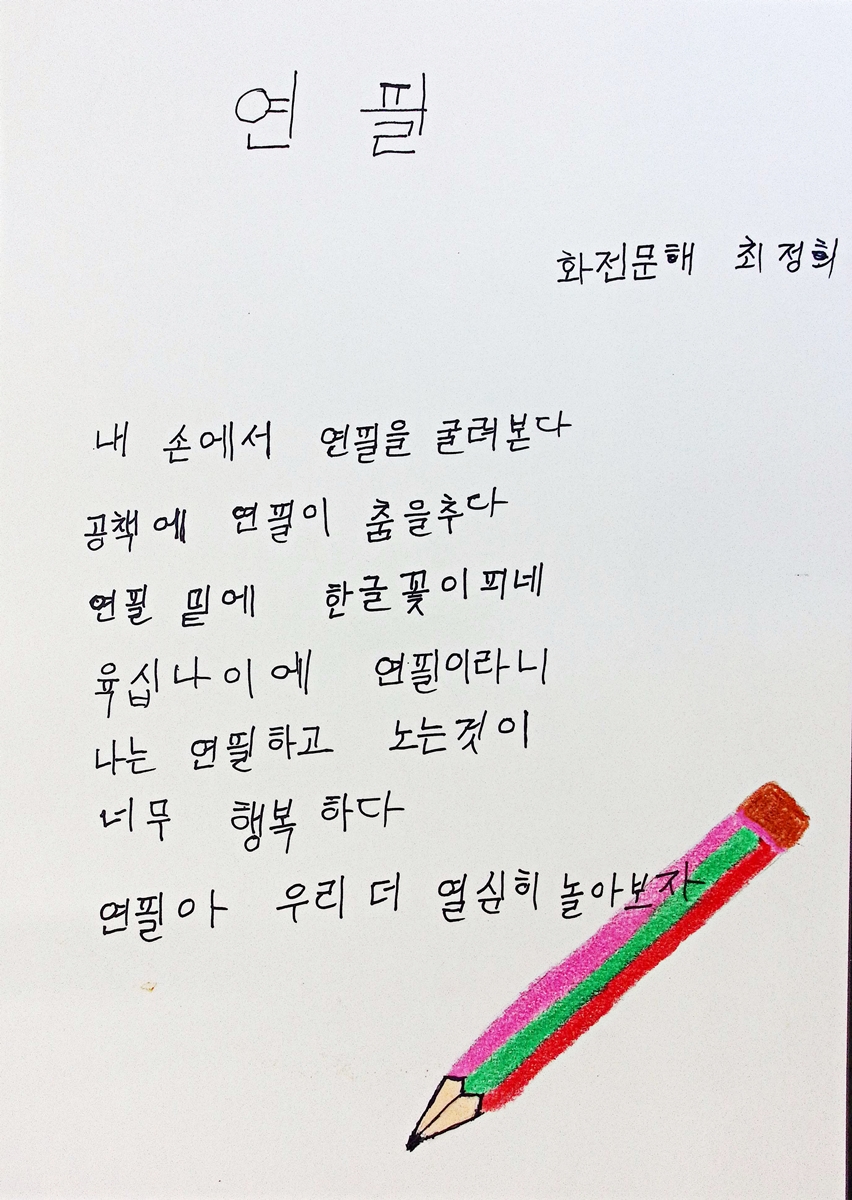 연필
화전문해 최정희
내 손에서 연필을 굴려본다
공책에 연필이 춤을추다
연필 밑에 한글꽃이피네
육십나이에 연필이라니
나는 연필하고 노는것이
너무 행복 하다
연필아 우리 더 열싣히 놀아보자